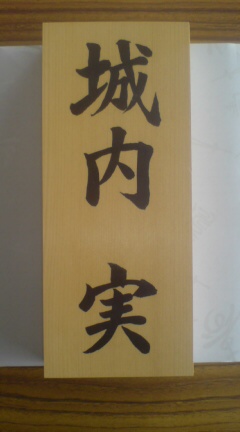 城内 実